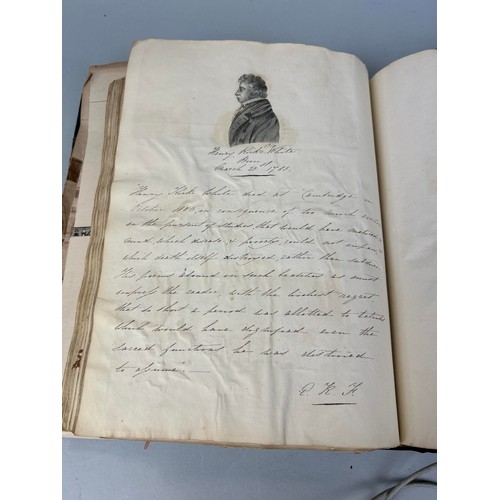 Henry Kirke White
Born
March 21st 1785
Henry Kirke White died at Cambridge in
October 1806 in consequence of too much
in the pursuit of studies that would have
mind, which disease, & poverty, could not
which death itself destroyed, rather than subdued
His poems abound in such beauties as must
impress the reader, with the liveliest regret
that so short a period was allotted to talents
which would have dignified even the
sacred functions he was destined
to assume.—